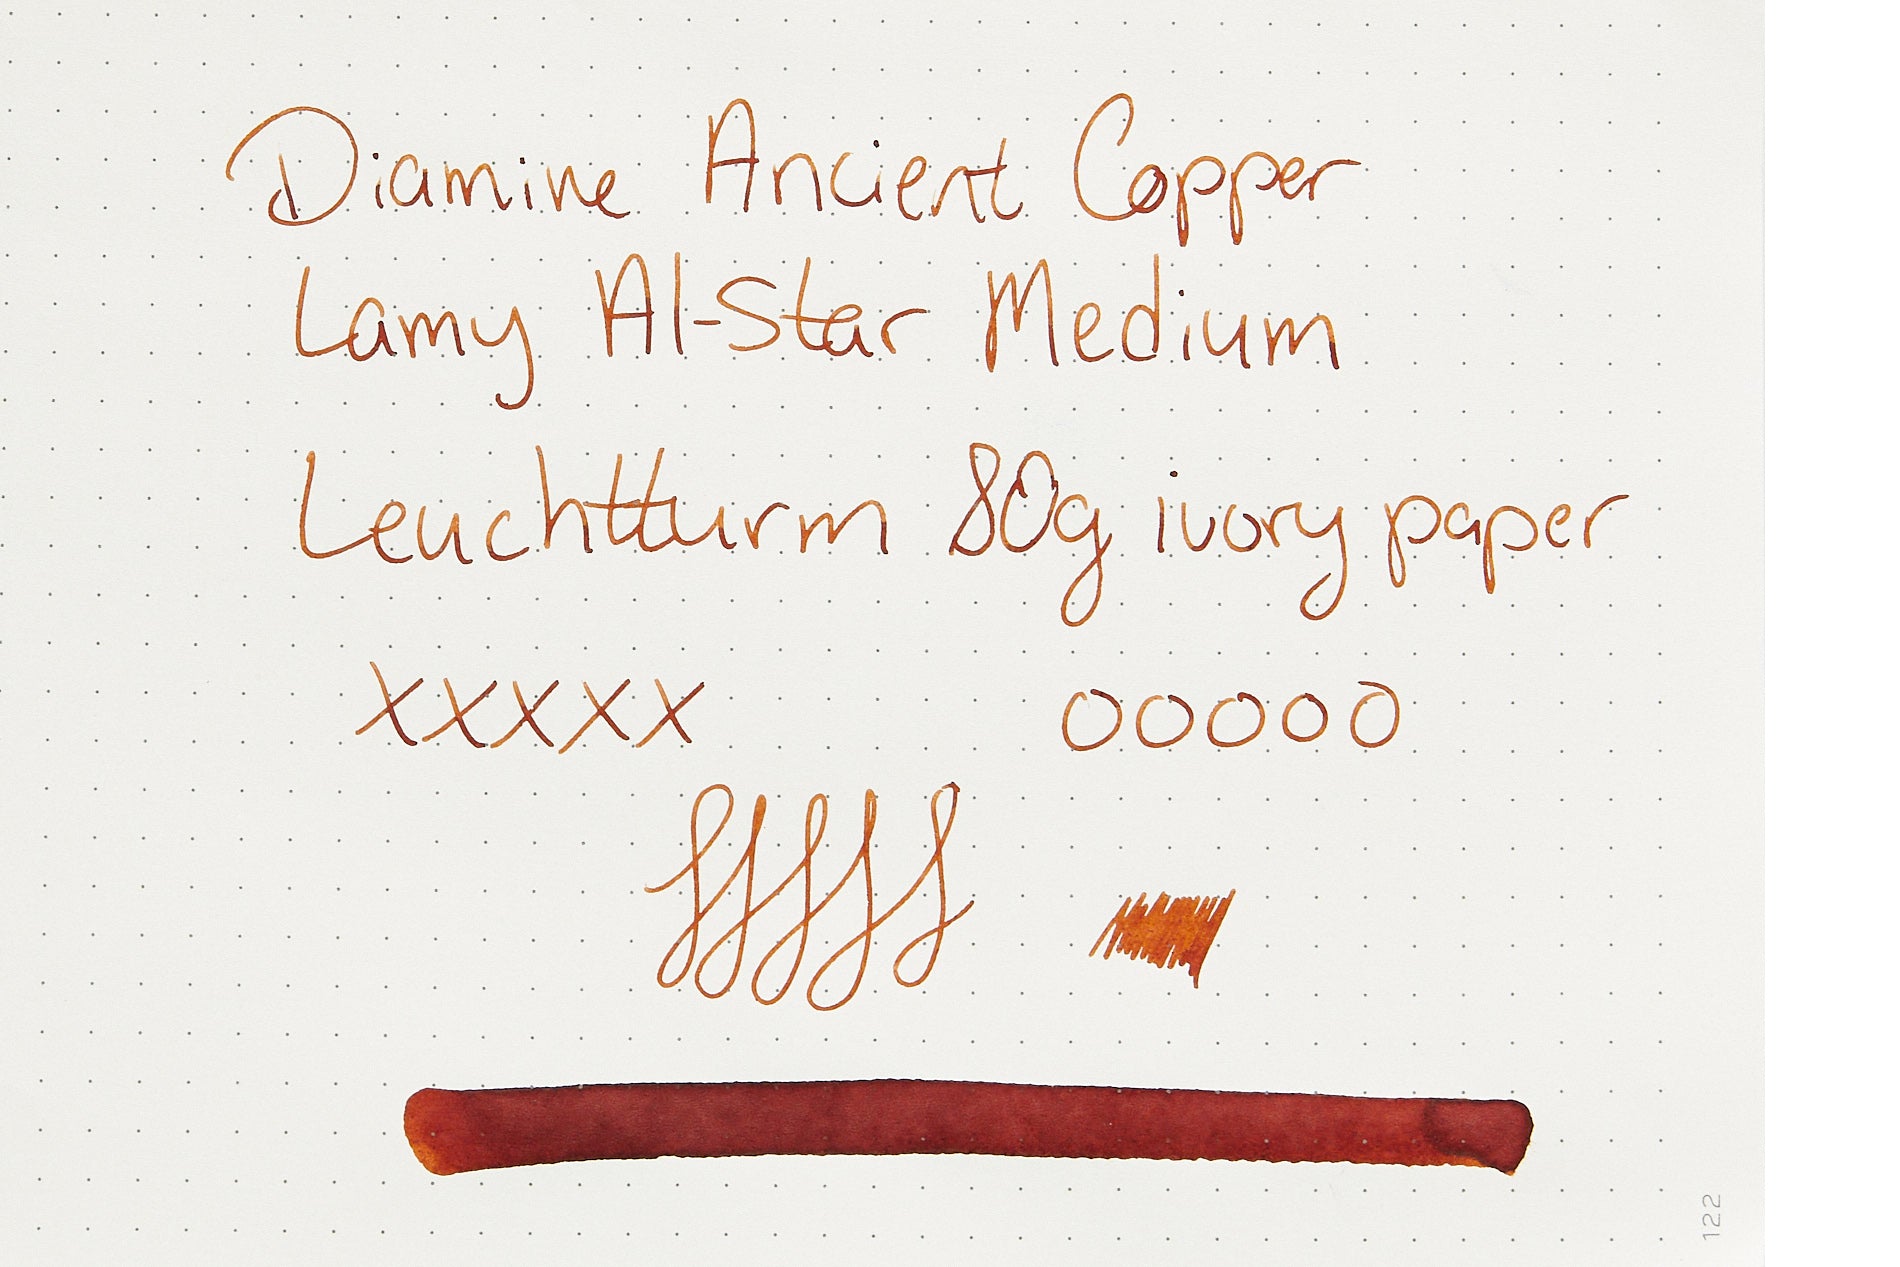 Diamine Ancient Copper
Lamy Al-Star Medium
Leuchtturm 80g ivory paper
xxxxx ooooo
fffff
122